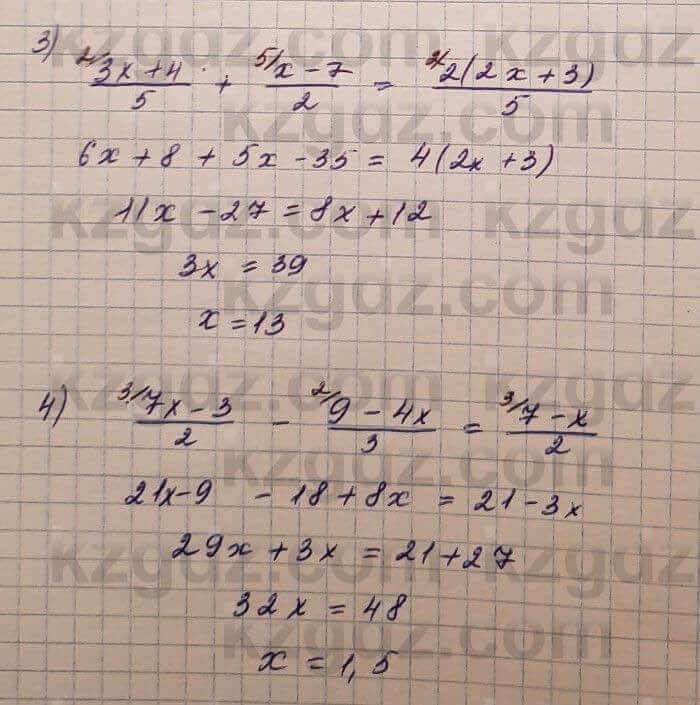 3) 2/ 3x + 4 / 5 + 5/ x - 7 / 2 = 2/ 2(2x + 3) / 5
6x + 8 + 5x - 35 = 4(2x + 3)
11x - 27 = 8x + 12
3x = 39
x = 13
4) 3/ 7x - 3 / 2 - 2/ 9 - 4x / 3 = 3/ 7 - x / 2
21x - 9 - 18 + 8x = 21 - 3x
29x + 3x = 21 + 27
32x = 48
x = 1,5
kzgdz.com